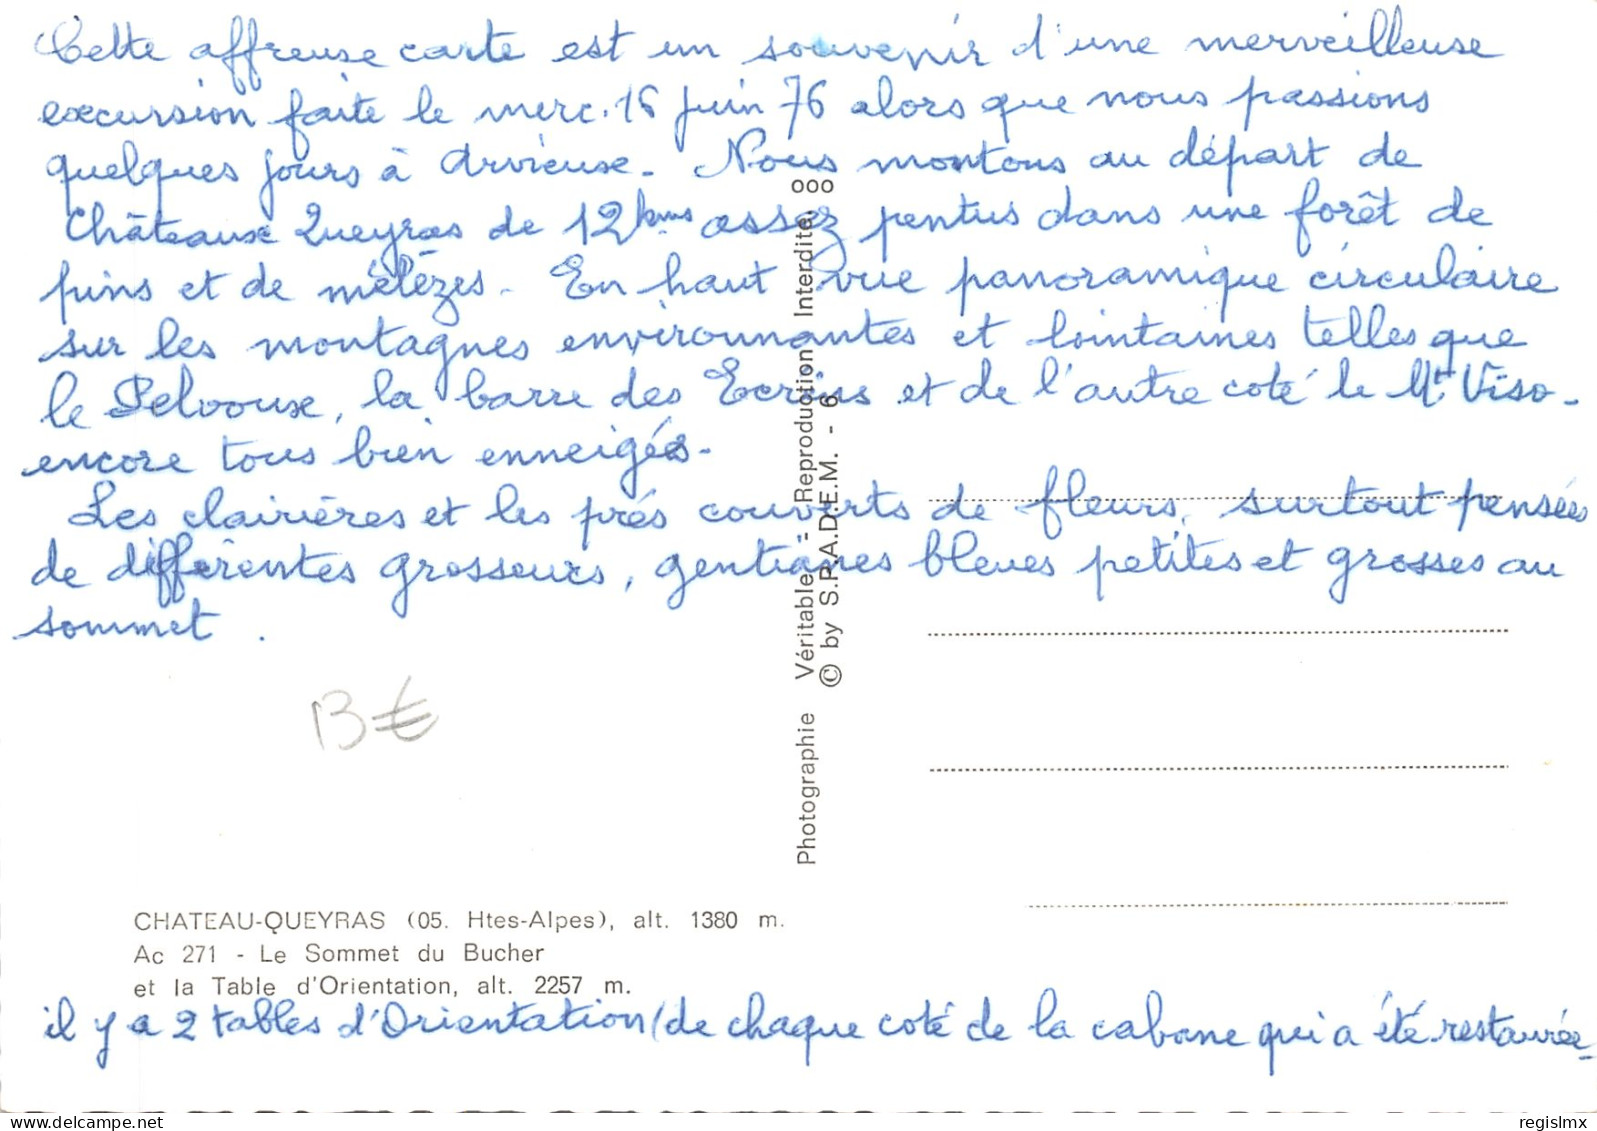 Cette affreuse carte est un souvenir d'une merveilleuse
excursion faite le merc. 16 Juin 76 alors que nous passions
quelques jours à Arvieuse. Nous montons au départ de
Châteaux Queyras de 12 kms assez pentus dans une forêt de
pins et de mélèzes. En haut vue panoramique circulaire
sur les montagnes environnantes et lointaines telles que
le Pelvoux, la barre des Ecrins et de l'autre coté le Mt Viso.
encore tous bien enneigés.
Les clairières et les prés couverts de fleurs, surtout pensées
de différentes grosseurs, gentianes bleues petites et grosses au
sommet.
13 €
Photographie Véritable - Reproduction Interdite. 000
© by S.P.A.D.E.M. - 6
CHATEAU-QUEYRAS (05. Htes-Alpes), alt. 1380 m.
Ac 271 - Le Sommet du Bucher
et la Table d'Orientation, alt. 2257 m.
il y a 2 tables d'Orientation (de chaque coté de la cabane qui a été restaurée
regislmx